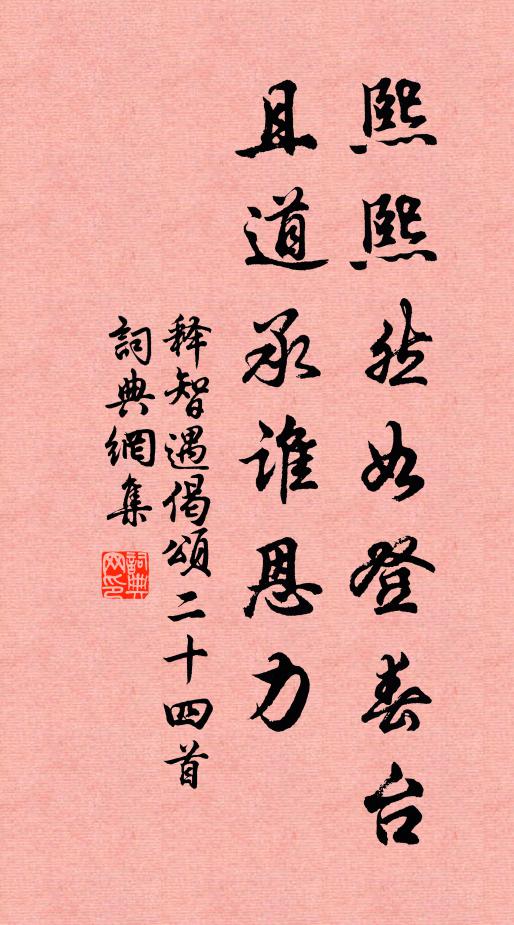 熙熙然如登春台
且道承谁恩力
释智遇偈頌二十四首
詞典網集
詞典网印